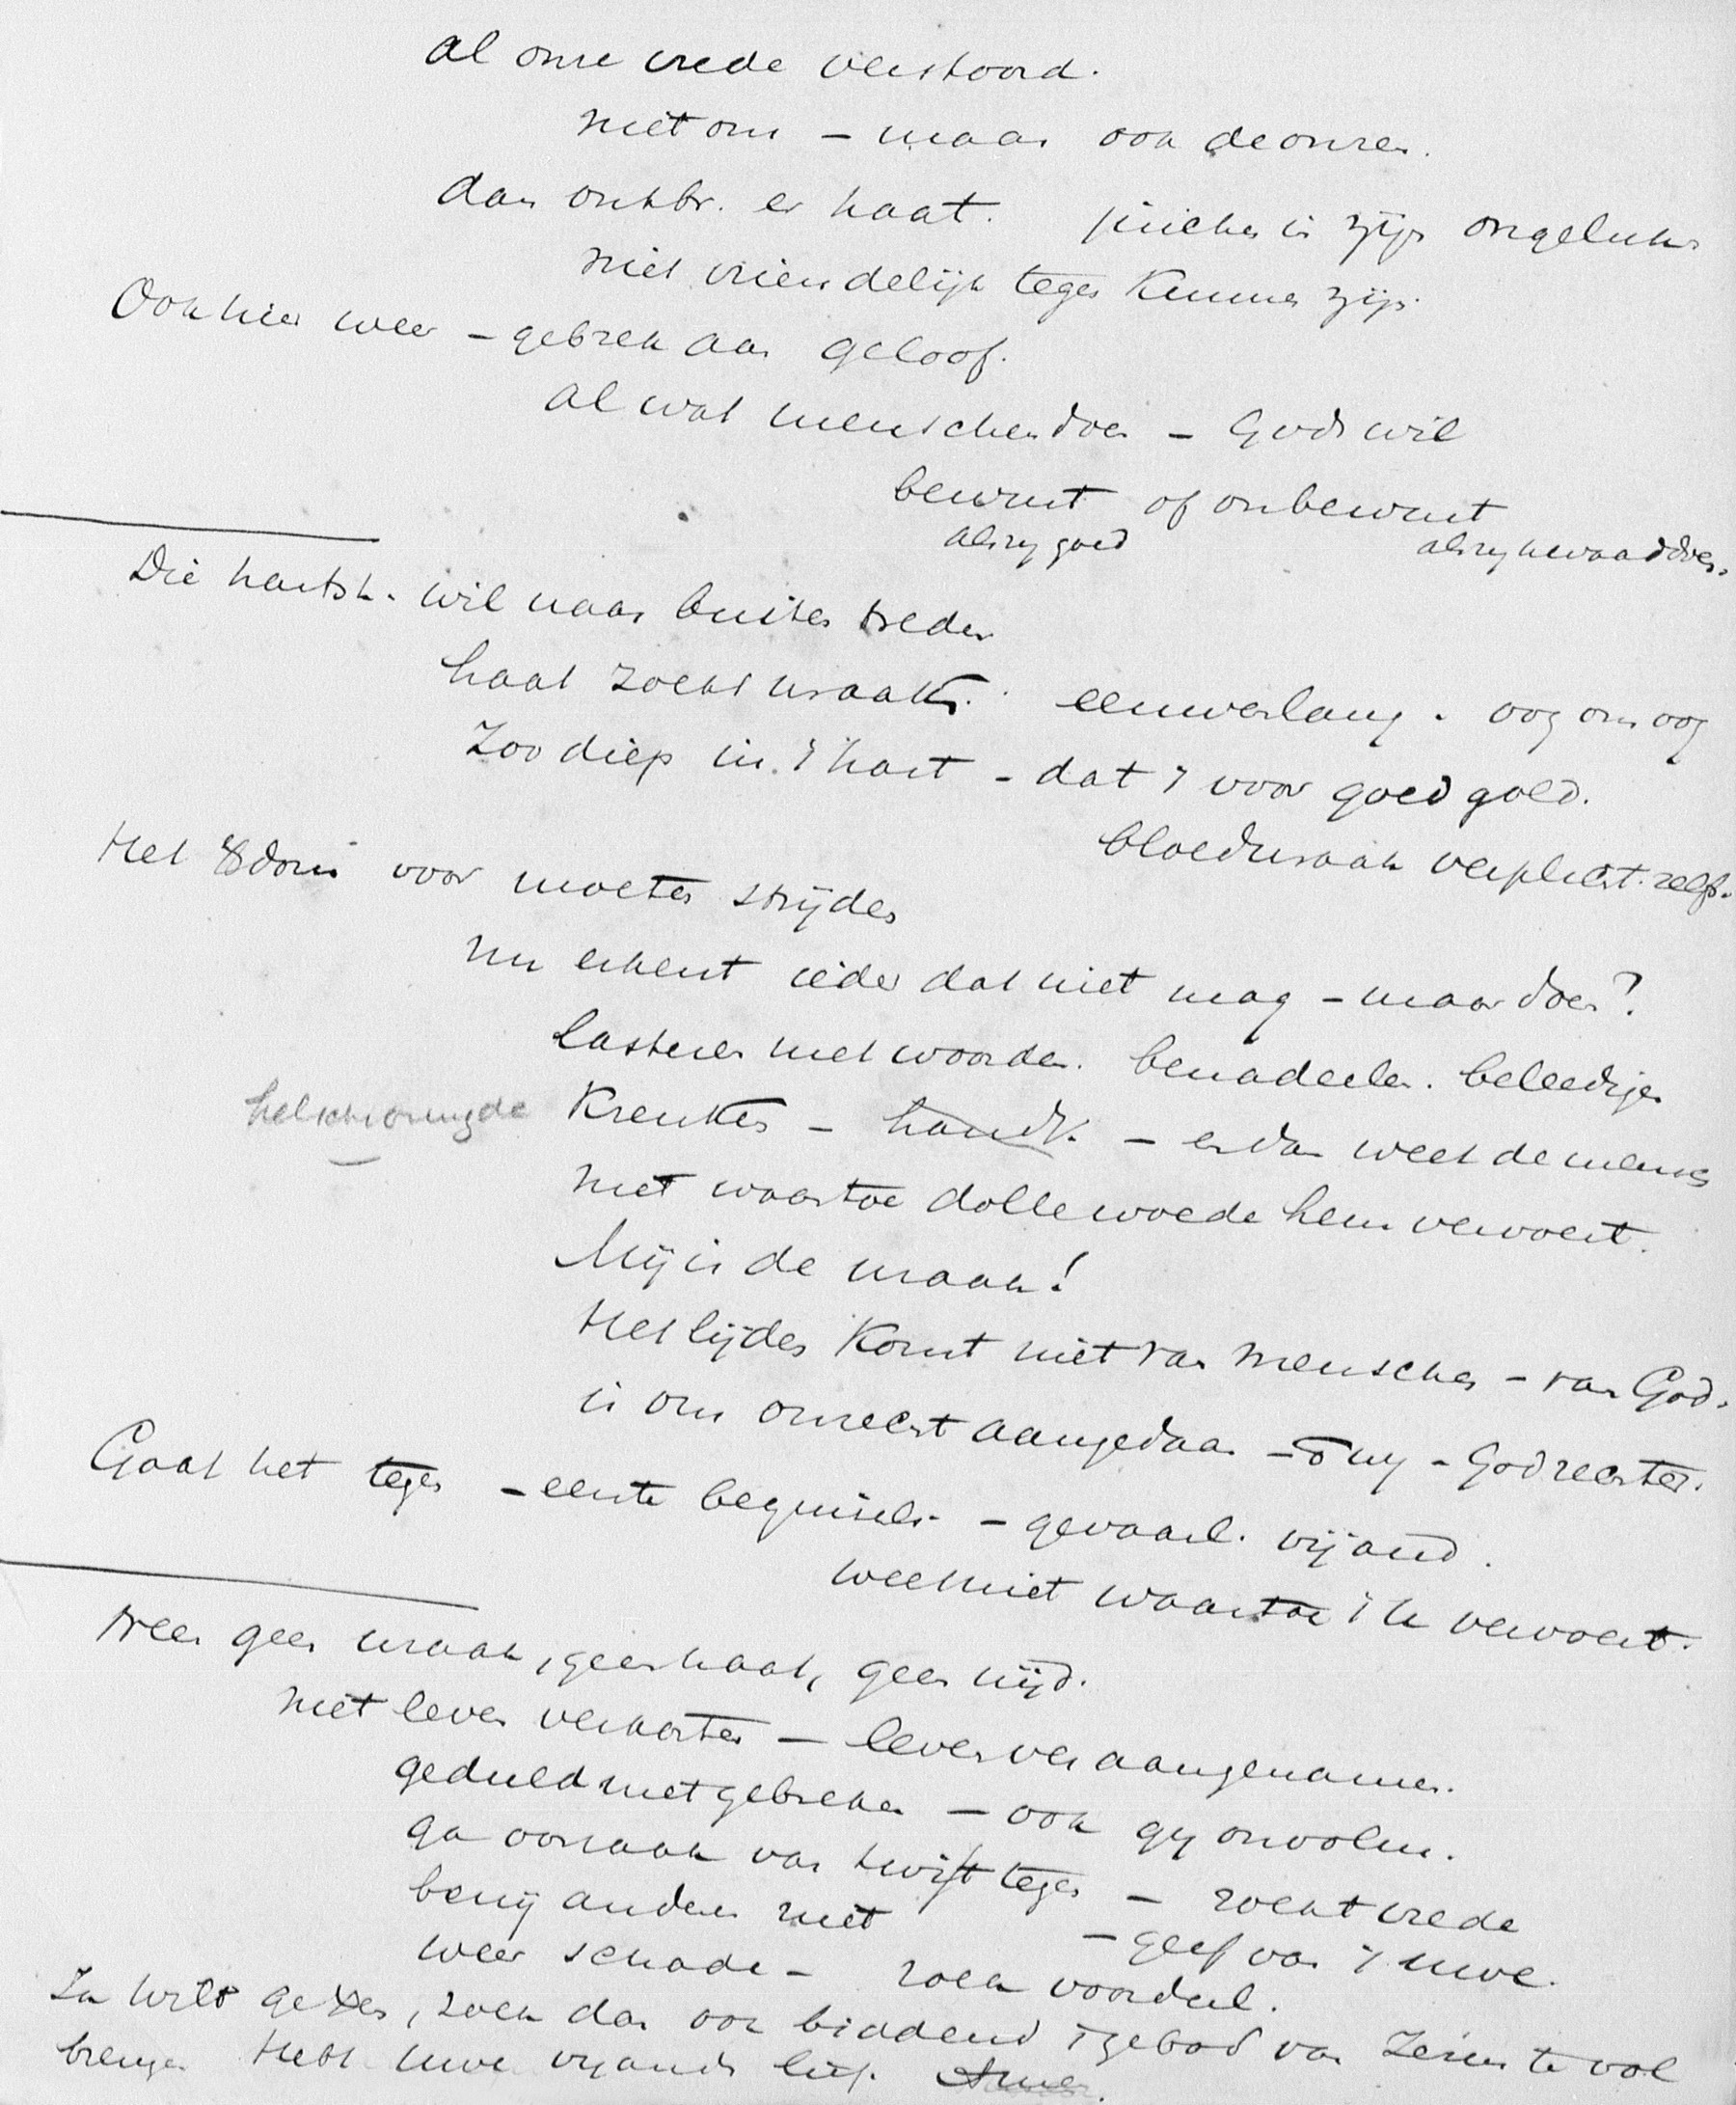 al onze vrede verstoord.
niet ons – maar ook de onzen.
dan ontbr. er haat. juichen in zijn ongeluk
niet vriendelijk tegen kunnen zijn.
Ook hier weer – gebrek aan geloof.
al wat menschen doen – Gods wil
bewust of onbewust
als zy goed als zy kwaad doen.
Die hartst. wil naar buiten treden
haat zoekt wraak. eeuwenlang. oog om oog
Zoo diep in 't hart – dat 't voor goed gold.
bloedwraak verplicht. zelfs.
Het Xdom voor moeten strijden
nu erkent ieder dat niet mag – maar doen?
lasteren met woorden. benadeelen. beleedigen
krenken – – en dan weet de mensch
niet waartoe dolle woede hem vervoert.
Mij is de wraak!
Het lijden komt niet van menschen – van God.
is ons onrecht aangedaan – zy – God rechter.
Gaat het tegen – eerste beginsel – gevaarl. vijand.
weet niet waartoe 't U vervoert.
Neen geen wraak, geen haat, geen nijd.
niet leven verkorten – leven veraangenamen.
geduld met gebreken – ook gy onvolm.
ga oorzaak van twist tegen – zoekt vrede
benij anderen niet – geef van 't uwe.
weer schade – zoek voordeel.
Zoo wilt ge, zoek dan ook biddend 't gebod van Jezus te vol
brengen Hebt uwe vyanden lief. Amen.